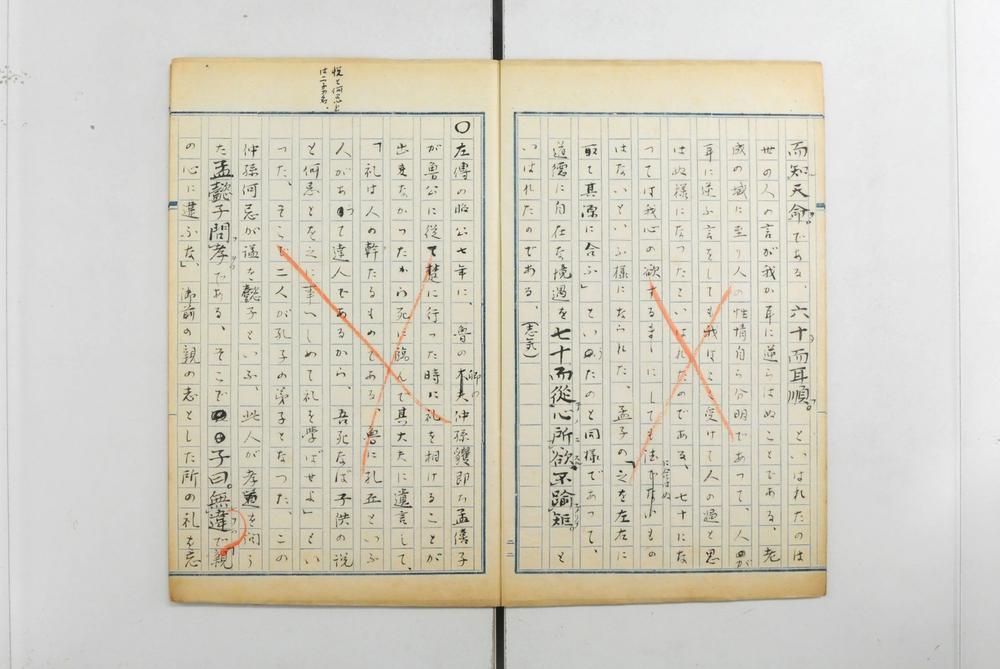 而知天命。である、六十而耳順。といはれたのは
世の人の言が我か耳に逆らはぬことである、老
成の域に至り人の性情自ら分明であつて、人が
耳に逆ふ言をしても我はこを受けて人の過と思
はぬ様になつたといはれたのである、七十にな
つては我心の欲するまゝにしても法に合はぬもの
はないといふ様になられた、孟子の「之を左右に
取て其源に合ふ」といつたのと同様であつて、
道徳に自在な境遇を七十而從心所欲不踰矩。と
いはれたのである、(志気)
悦と何忌と
は二子の名、
〇左傳の昭公七年に、魯の卿の大夫仲孫貜即ち孟僖子
が魯公に従て楚に行った時に礼を相けることが
出来なかつたから死に臨んで其大夫に遺言して、
「礼は人の幹たるものである、魯に孔丘といふ
人があつて達人であるから、吾死なば子供の説
と何忌とを之に事へしめて礼を學ばせよ」とい
つた、そこで二人が孔子の弟子となつた、この
仲孫何忌が謚を懿子といふ、此人が孝道を問う
た孟懿子問孝である、そこで子曰。無違で親
の心に違ふな、」御前の親の志とした所の礼を忘
二二